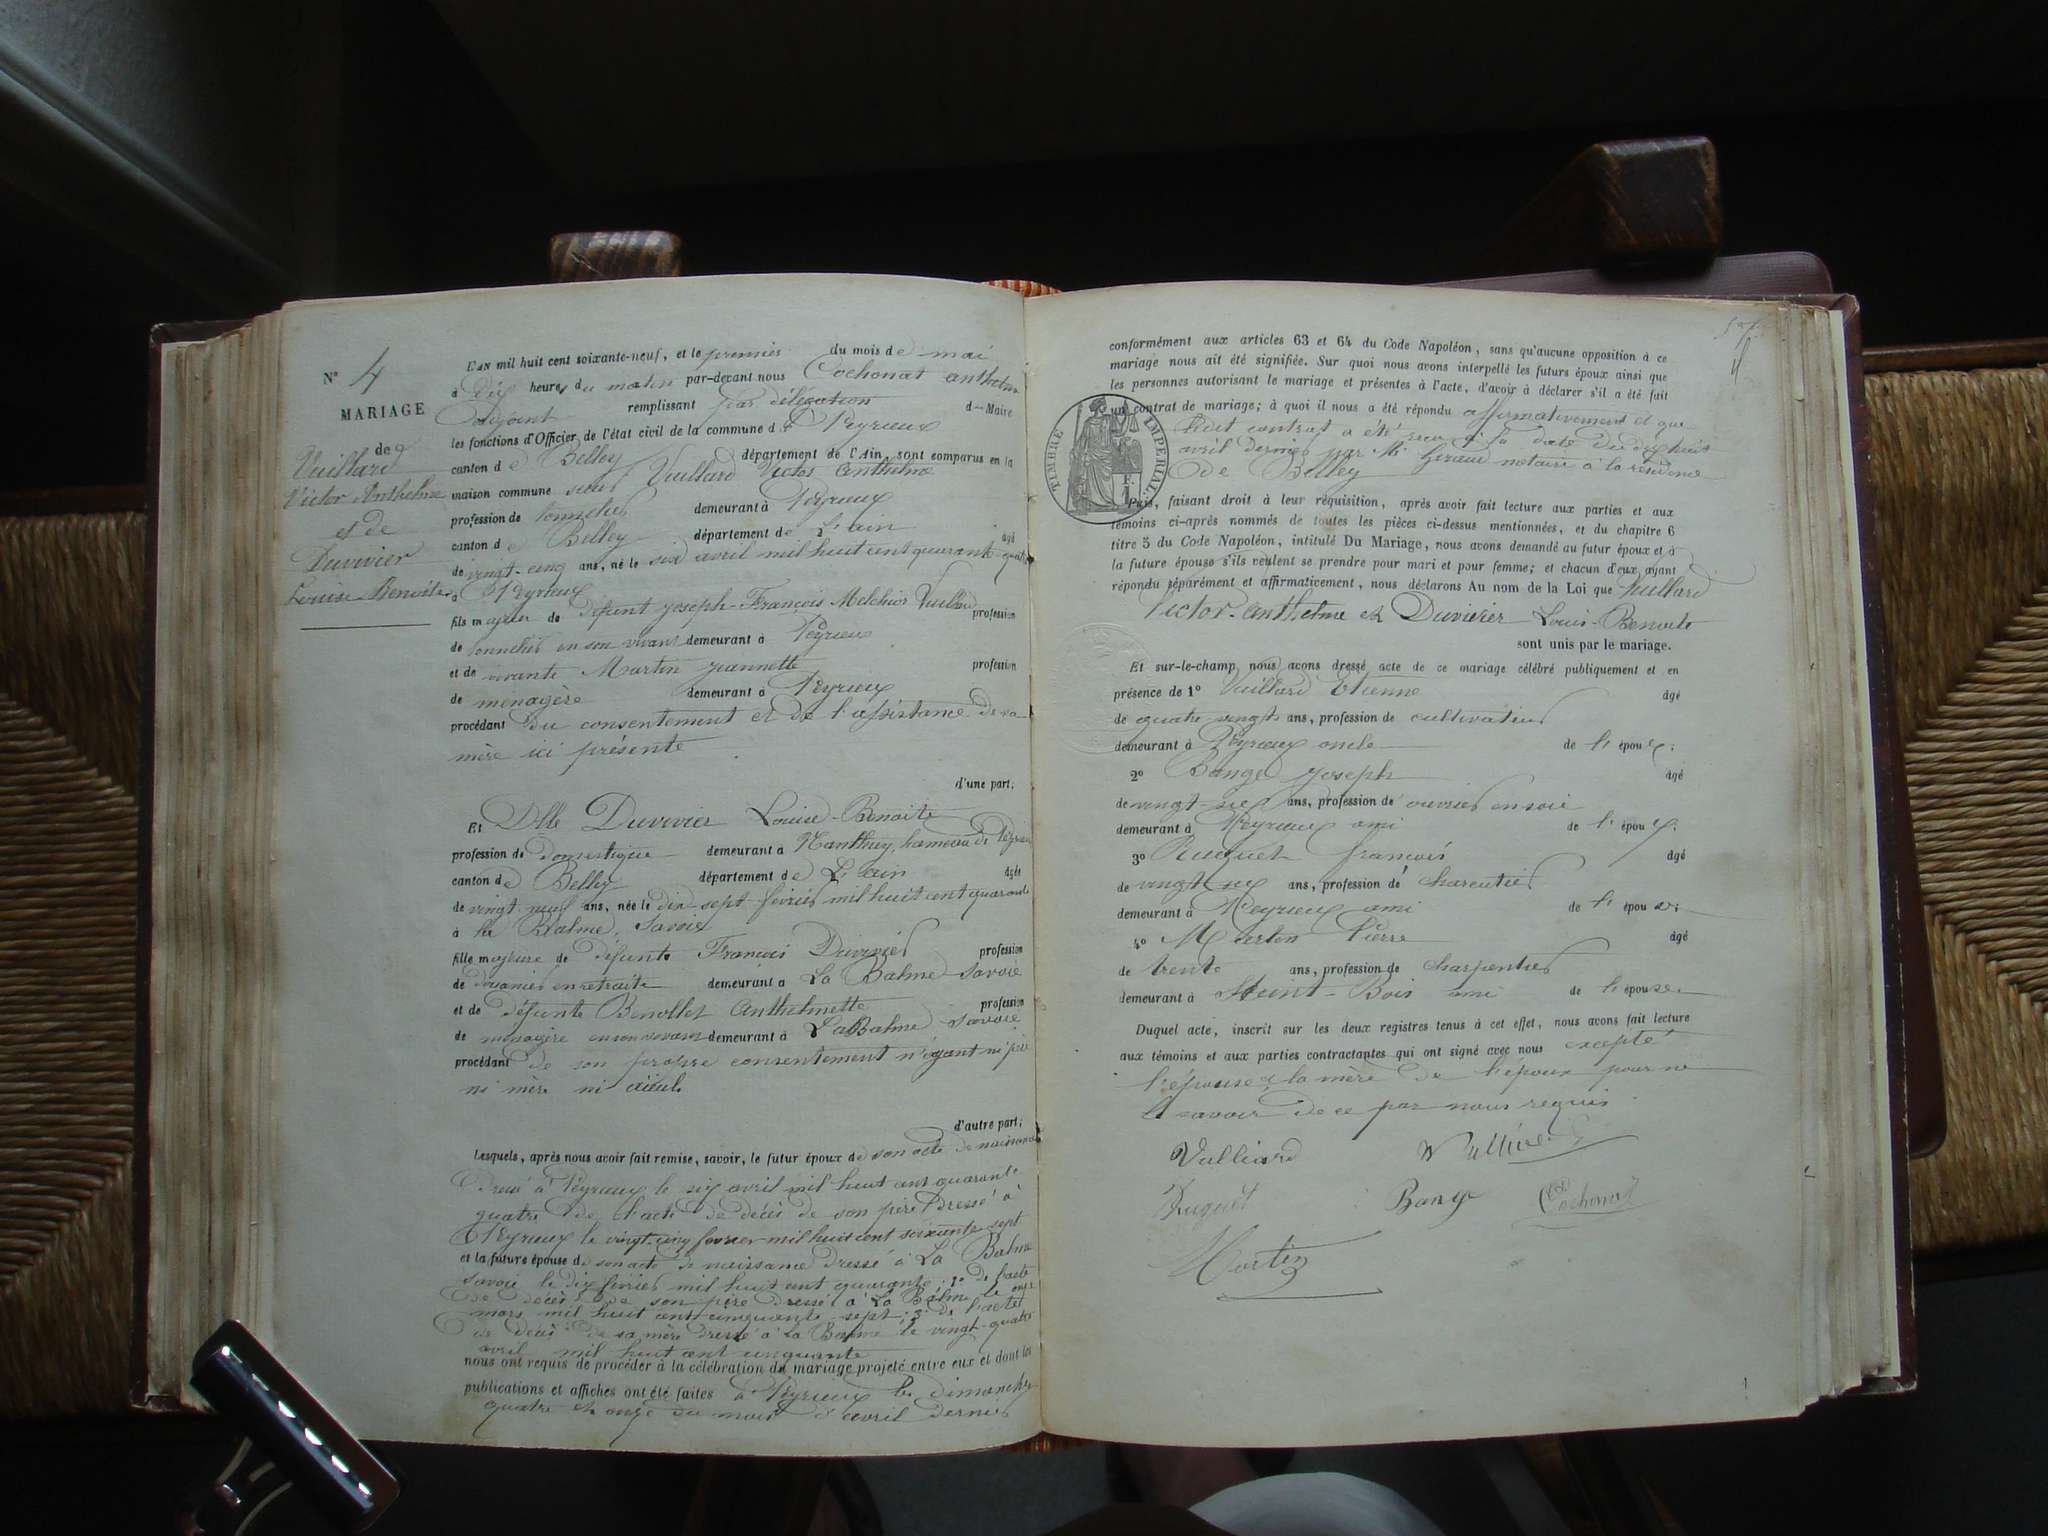 N° 4
MARIAGE
de
Vuillard
Victor Anthelme
et de
Duvivier
Louise-Benoite
L'AN mil huit cent soixante-neuf, et le premier du mois de mai
à Dix heures du matin par-devant nous Cochonat anthelme
adjoint remplissant par délégation d Maire
les fonctions d'Officier de l'état civil de la commune de Peyrieux
canton de Belley département de l'Ain, sont comparus en la
maison commune sieur Vuillard Victor anthelme
profession de tonnelier demeurant à Peyrieux
canton de Belley département de L'ain âgé
de vingt-cinq ans, né le six avril mil huit cent quarante-quatre
à Peyrieux
fils majeur de défunt Joseph-François Melchior Vuillard profession
de tonnelier en son vivant demeurant à Peyrieux
et de vivante Martin jeannette profession
de ménagère demeurant à Peyrieux
procédant du consentement et de l'assistance de sa
mère ici présente
d'une part;
Et Dlle Duvivier Louise-Benoite
profession de domestique demeurant à Nanthuy, hameau de Peyrieux
canton de Belley département de L'ain âgée
de vingt neuf ans, née le dix-sept février mil huit cent quarante
à la Balme, Savoie
fille majeure de défunt François Duvivier profession
de douanier en retraite demeurant à La Balme Savoie
et de défunte Benollet Anthelmette profession
de ménagère en son vivant demeurant à La Balme Savoie
procédant de son propre consentement n'ayant ni père
ni mère ni aïeul.
d'autre part;
Lesquels, après nous avoir fait remise, savoir, le futur époux de son acte de naissance
Dressé à Peyrieux le six avril mil huit cent quarante
quatre de l'acte de décès de son père Dressé à
Peyrieux le vingt-cinq fevrier mil huit cent soixante sept
et la future épouse de son acte de naissance dressé à La Balme
savoie le dix février mil huit cent quarante; 1° de l'acte
de décès de son père dressé à La Balme le onze
mars mil huit cent cinquante-sept; 3° de l'acte
de décès de sa mère dressé à La Balme le vingt-quatre
avril mil huit cent cinquante
nous ont requis de procéder à la célébration du mariage projeté entre eux et dont les
publications et affiches ont été faites à Peyrieux les dimanches
quatre et onze du mois d'avril dernier
conformément aux articles 63 et 64 du Code Napoléon, sans qu'aucune opposition à ce
mariage nous ait été signifiée. Sur quoi nous avons interpellé les futurs époux ainsi que
les personnes autorisant le mariage et présentes à l'acte, d'avoir à déclarer s'il a été fait
un contrat de mariage; à quoi il nous a été répondu affirmativement et que
ledit contrat a été reçu à la date du dix huit
avril dernier par Me Geraud notaire à la résidence
de Belley
TIMBRE IMPÉRIAL
1 F.
Puis, faisant droit à leur réquisition, après avoir fait lecture aux parties et aux
témoins ci-après nommés de toutes les pièces ci-dessus mentionnées, et du chapitre 6
titre 5 du Code Napoléon, intitulé Du Mariage, nous avons demandé au futur époux et à
la future épouse s'ils veulent se prendre pour mari et pour femme; et chacun d'eux ayant
répondu séparément et affirmativement, nous déclarons Au nom de la Loi que Vuillard
Victor-anthelme et Duvivier Louis-Benoite
sont unis par le mariage.
Et sur-le-champ nous avons dressé acte de ce mariage célébré publiquement et en
présence de 1° Vuillard Etienne âgé
de quatre vingts ans, profession de cultivateur
demeurant à Peyrieux oncle de l'époux;
2° Bange Joseph âgé
de vingt-six ans, profession de ouvrier en soie
demeurant à Peyrieux ami de l'époux;
3° Ruguet françois âgé
de vingt six ans, profession de charcutier
demeurant à Peyrieux ami de l'épouse;
4° Martin Pierre âgé
de trente ans, profession de charpentier
demeurant à Saint-Bois ami de l'épouse.
Duquel acte, inscrit sur les deux registres tenus à cet effet, nous avons fait lecture
aux témoins et aux parties contractantes qui ont signé avec nous excepté
l'épouse & la mère de l'époux pour ne
le savoir de ce par nous requis.
Vulliard
Ruguet Bange Cochonat
Martin